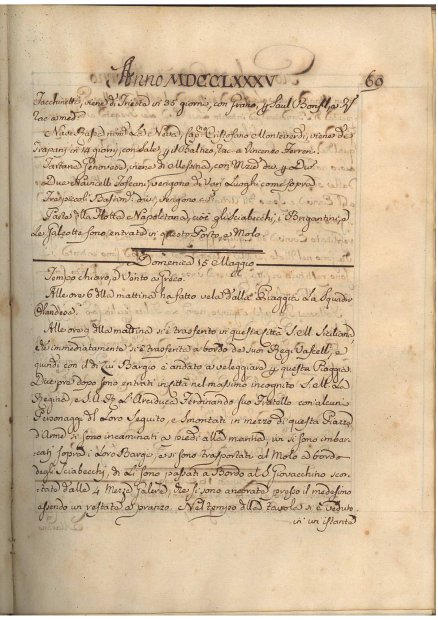 Anno MDCCLXXXV 60
Tacchinetto, viene di Trieste in 35 giorni, con Grano, 
Nave Ragusea nom. La Nuova, Cap. Cristofano Monteverdi, viene da
Trapani in 14 giorni, con Sale, il Baltico, rac. a Vincenzo
Tartana Genovese, viene di Messina, con
Due Navicelli Toscani, vengono di Vari Luoghi come sopra
Tre piccoli Bastim. vengono
Parte della Flotta Napoletana, cioè gli Sciabecchi, i Brigantini, e
Le Galeotte sono entrati in questo Porto, e Molo.
Domenica 15 Maggio
Tempo chiaro, e Vento a Greco.
Alle ore 6 della mattina ha fatto vela dalla Piaggia La Squadra
Olandese.
Alle ore 9 della mattina si è trasferito in questa Città S. M. Siciliana
ed immediatamente si è trasferita a bordo de suoi Regi Vascelli, e
quindi con il di Lui Bargio è andato a veleggiare p questa Piaggia.
Due ore dopo sono entrati in Città nel massimo incognito S. M. La
Regina, e S. A. R. L'Arciduca Ferdinando suo Fratello con alcuni
Personaggi del Loro Seguito, e smontati in mezzo di questa Piazza
d'Arme si sono incaminati a piedi alla marina, ivi si sono imbar-
cati sopra i Loro Bargi, e si sono trasportati al Molo a bordo
degli Sciabecchi, di Li sono passati a Bordo al S. Giovacchino scor-
tato dalle 4 Mezze Galere, che si sono ancorate presso il medesimo
essendovi restati a pranzo. Nel tempo della tavola si è veduto
in un istante